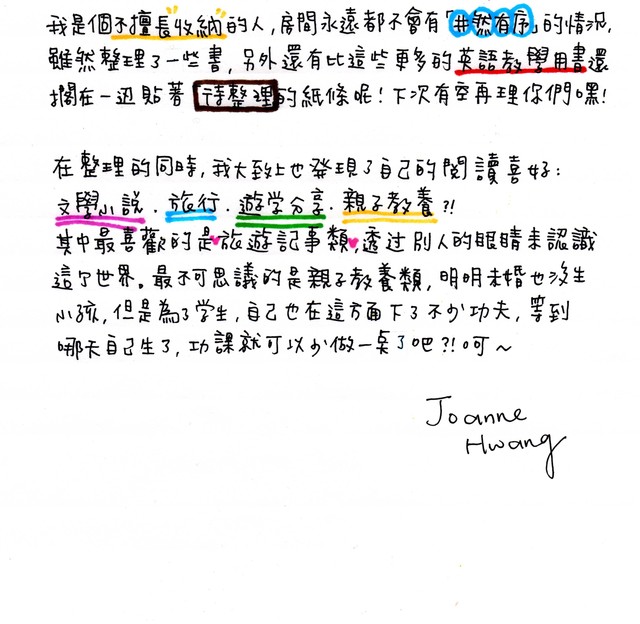 我是個不擅長"收納"的人,房間永遠都不會有「井然有序」的情況,
雖然整理了一些書,另外還有比這些更多的英語教學用書還
擱在一边貼著 待整理 的紙條呢!下次有空再理你們嘿!
在整理的同時,我大致上也發現了自己的閱讀喜好:
文學小說.旅行.遊学分享.親子教養?!
其中最喜歡的是♥旅遊記事類♥,透过別人的眼睛來認識
這个世界。最不可思議的是親子教養類,明明未婚也沒生
小孩,但是為了学生,自己也在這方面下了不少功夫,等到
哪天自己生了,功課就可以少做一点了吧?!呵~
Joanne
Hwang